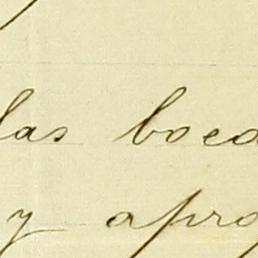 las boca
y apro